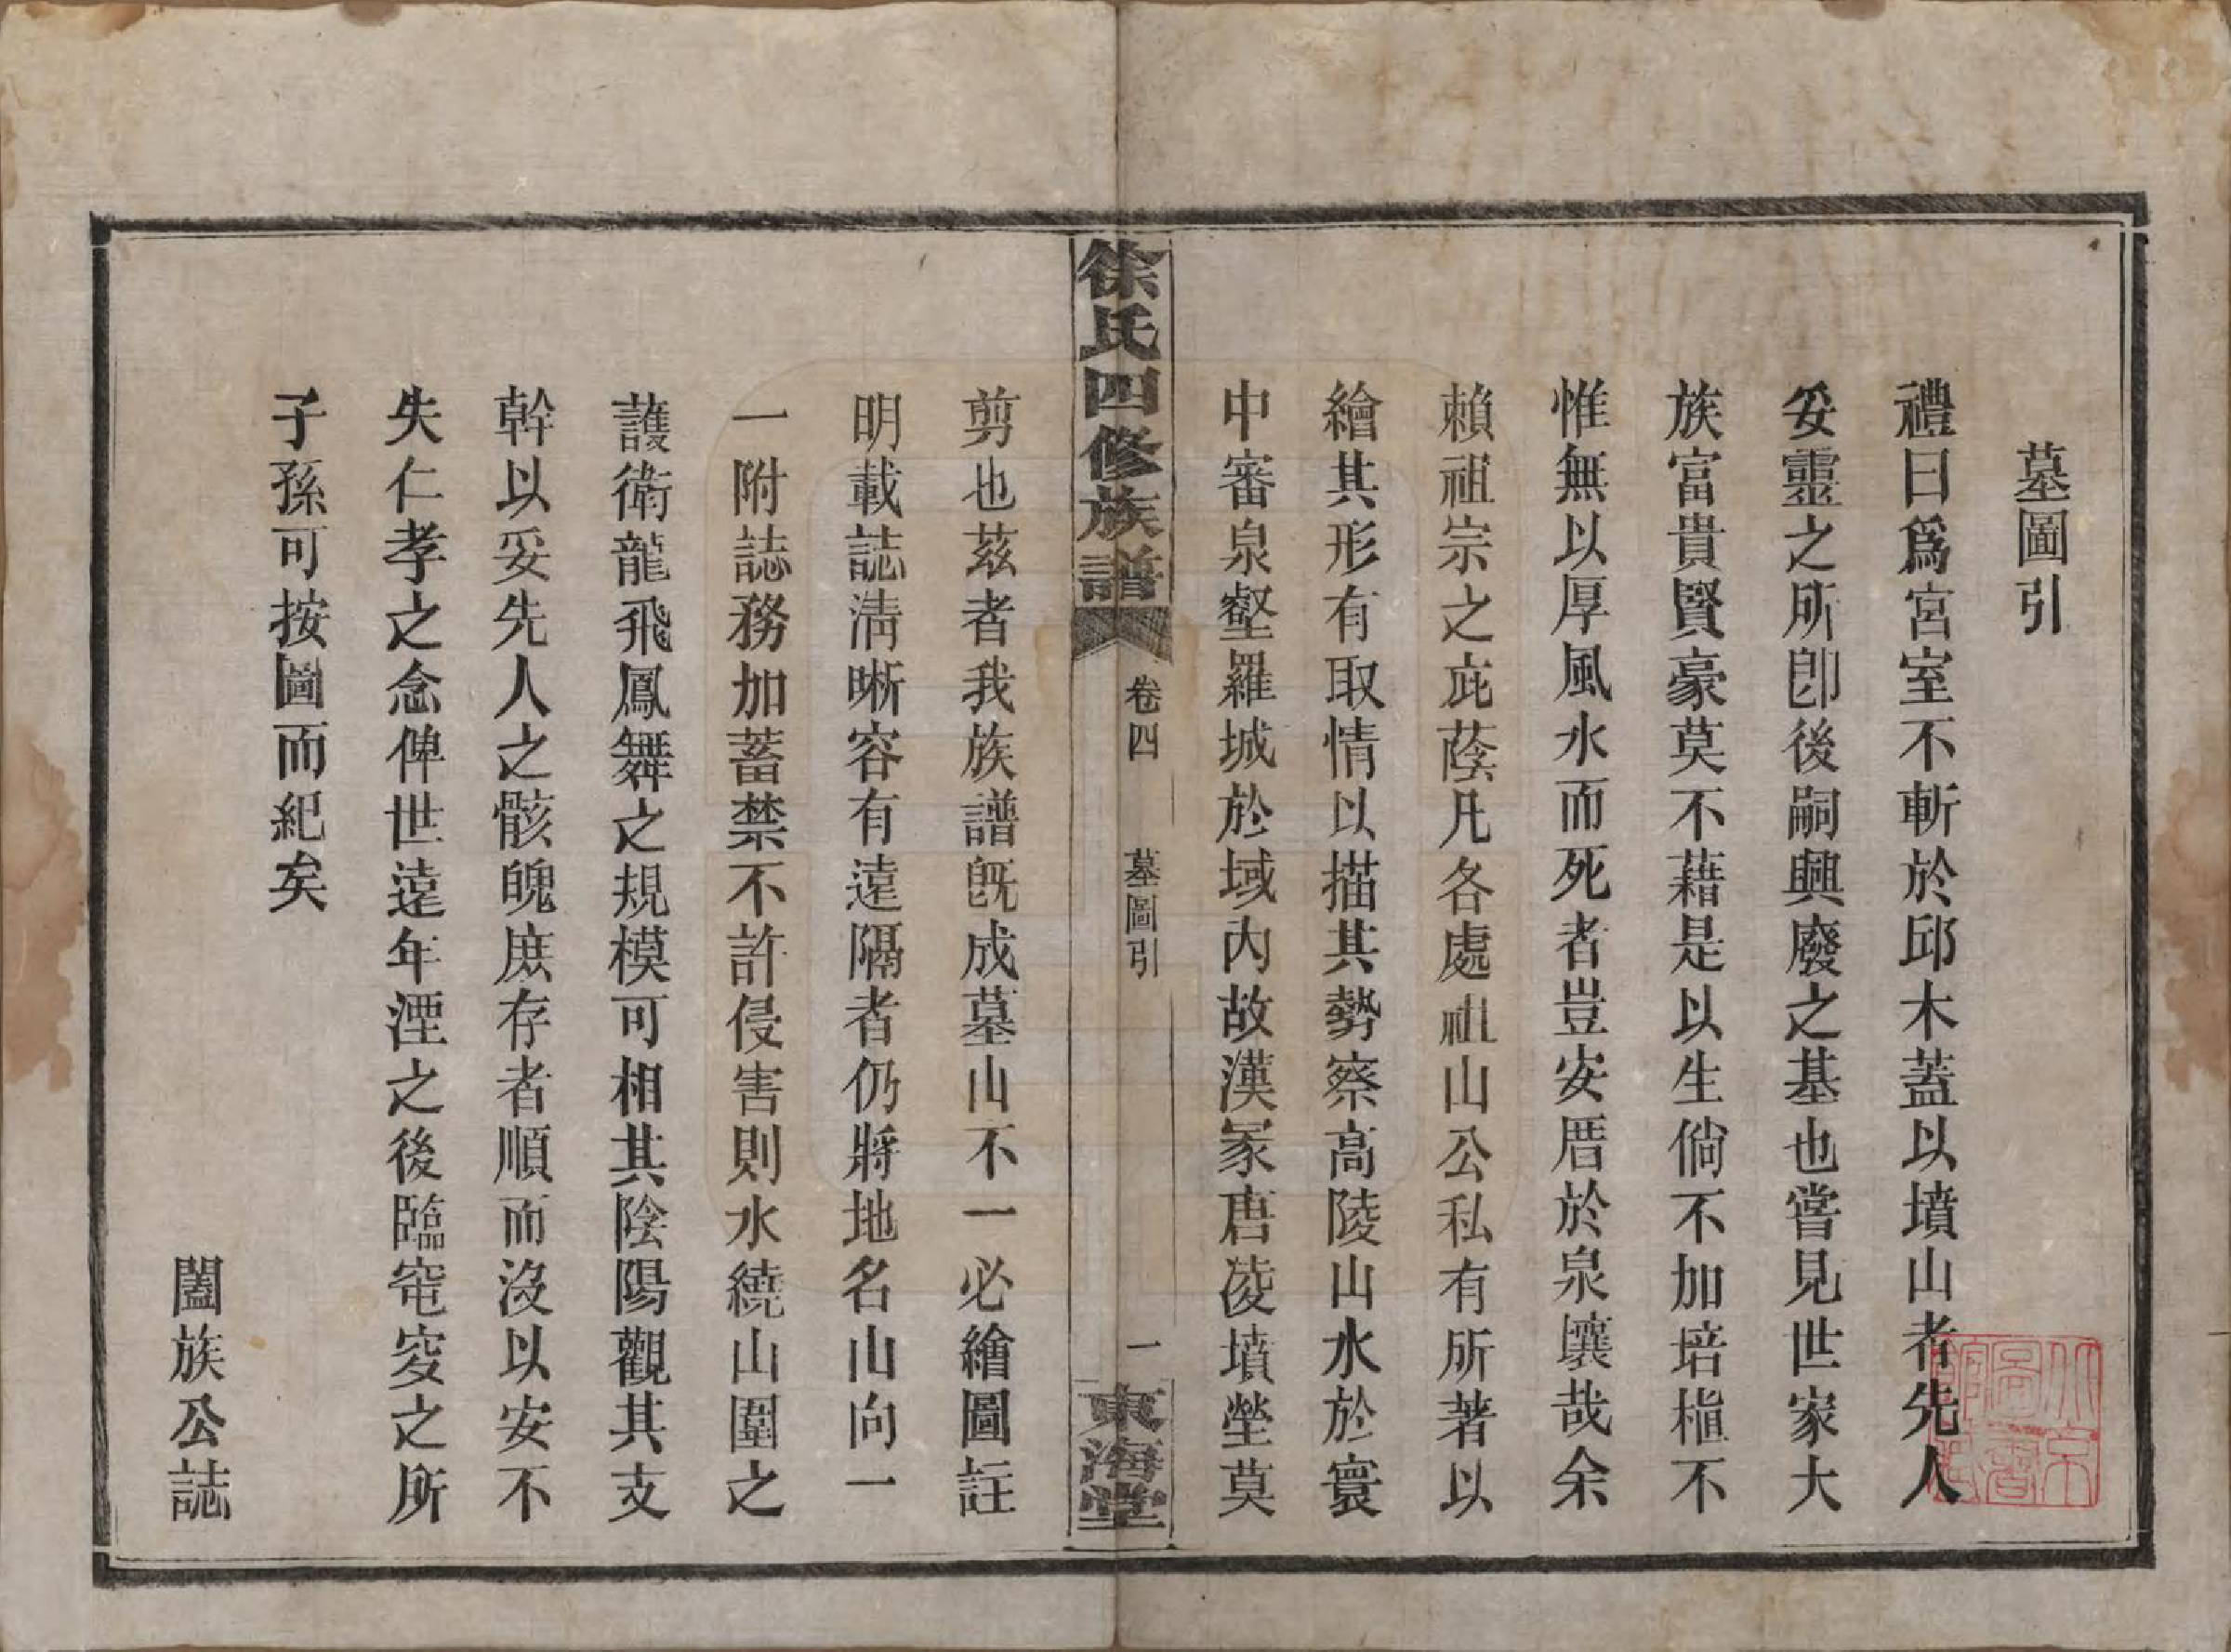 墓圖引
禮曰爲宮室不斬於邱木蓋以墳山者先人
妥靈之所卽後嗣興廢之基也嘗見世家大
族富貴賢豪莫不藉是以生倘不加培植不
惟無以厚風水而死者豈安厝於泉壤哉余
賴祖宗之庇蔭凡各處祖山公私有所著以
繪其形有取情以描其勢察高陵山水於寰
中審泉壑羅城於域內故漢冢唐陵墳塋莫
徐氏四修族譜
卷四
墓圖引
一
東海堂
剪也茲者我族譜旣成墓山不一必繪圖註
明載誌淸晰容有遠隔者仍將地名山向一
一附誌務加蓄禁不許侵害則水繞山圍之
護衛龍飛鳳舞之規模可相其陰陽觀其支
幹以妥先人之骸魄庶存者順而沒以安不
失仁孝之念俾世遠年湮之後臨窀穸之所
子孫可按圖而紀矣
闔族公誌
北京
圖書
館藏